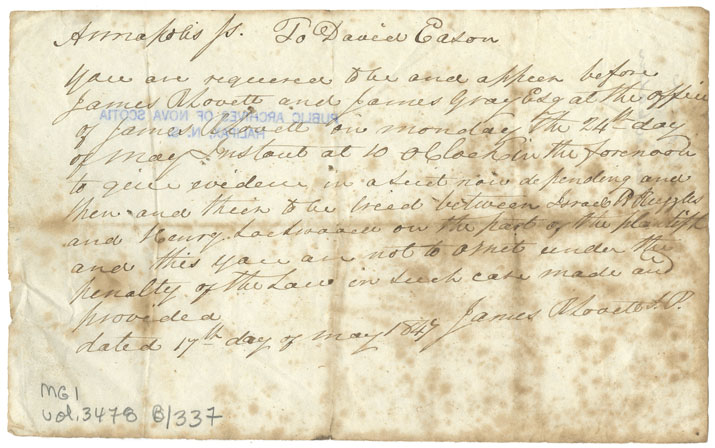 Annapolis Ss. To David Eason
you are requiered to be and appeer before
James R Lovett and James Gray Esq at the office
of James R Lovett on monday the 24th day
of may Instant at 10 O Clock in the forenoon
to give evidene in a suit now depending and
then and their to be treed between Israel R Ruggles
and Henry Lockwood on the part of the plantiff
and this you are not to omet under the
penalty of the Law in such case made and
provided
dated 17th day of may 1847 James R Lovett J.P.
PUBLIC ARCHIVES OF NOVA SCOTIA
HALIFAX, N. S.
MG1
vol. 3478 B/337